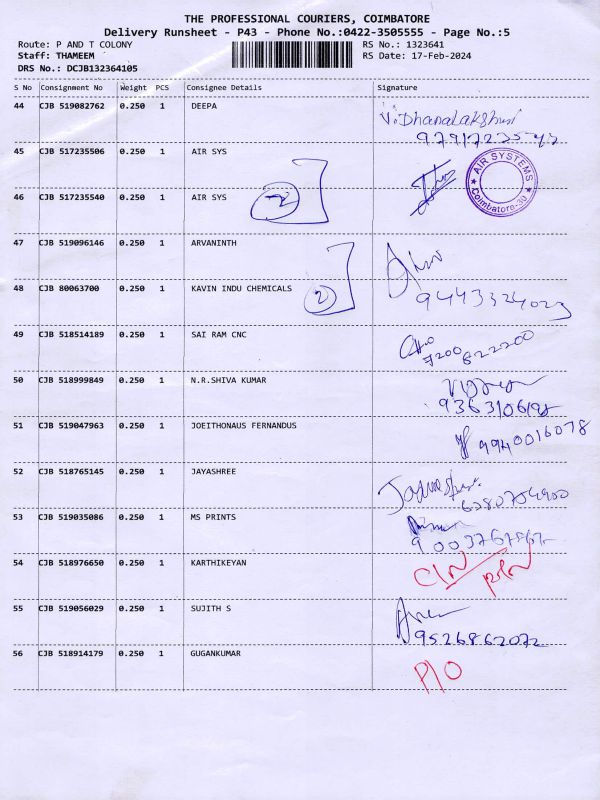 THE PROFESSIONAL COURIERS, COIMBATORE
Delivery Runsheet - P43 - Phone No.:0422-3505555 - Page No.:5
Route: P AND T COLONY
RS No.: 1323641
Staff: THAMEEM
RS Date: 17-Feb-2024
DRS No.: DCJB132364105
S No Consignment No Weight PCS Consignee Details Signature
44 CJB 519082762 0.250 1 DEEPA
V. Dhanalakshmi
45 CJB 517235506 0.250 1 AIR SYS
AIR SYSTEMS
Coimbatore-30
46 CJB 517235540 0.250 1 AIR SYS
2
47 CJB 519096146 0.250 1 ARVANINTH
48 CJB 80063700 0.250 1 KAVIN INDU CHEMICALS
2
9443324023
49 CJB 518514189 0.250 1 SAI RAM CNC
7200822200
50 CJB 518999849 0.250 1 N.R.SHIVA KUMAR
51 CJB 519047963 0.250 1 JOEITHONAUS FERNANDUS
9940016078
52 CJB 518765145 0.250 1 JAYASHREE
6380754900
53 CJB 519035086 0.250 1 MS PRINTS
54 CJB 518976650 0.250 1 KARTHIKEYAN
55 CJB 519056029 0.250 1 SUJITH S
9526862072
56 CJB 518914179 0.250 1 GUGANKUMAR
P/O